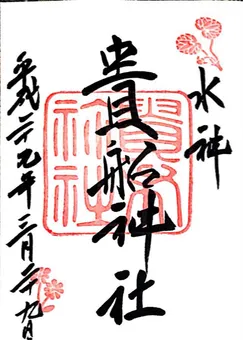 水神
貴船神社
貴船
神社
平成二九年三月二十九日